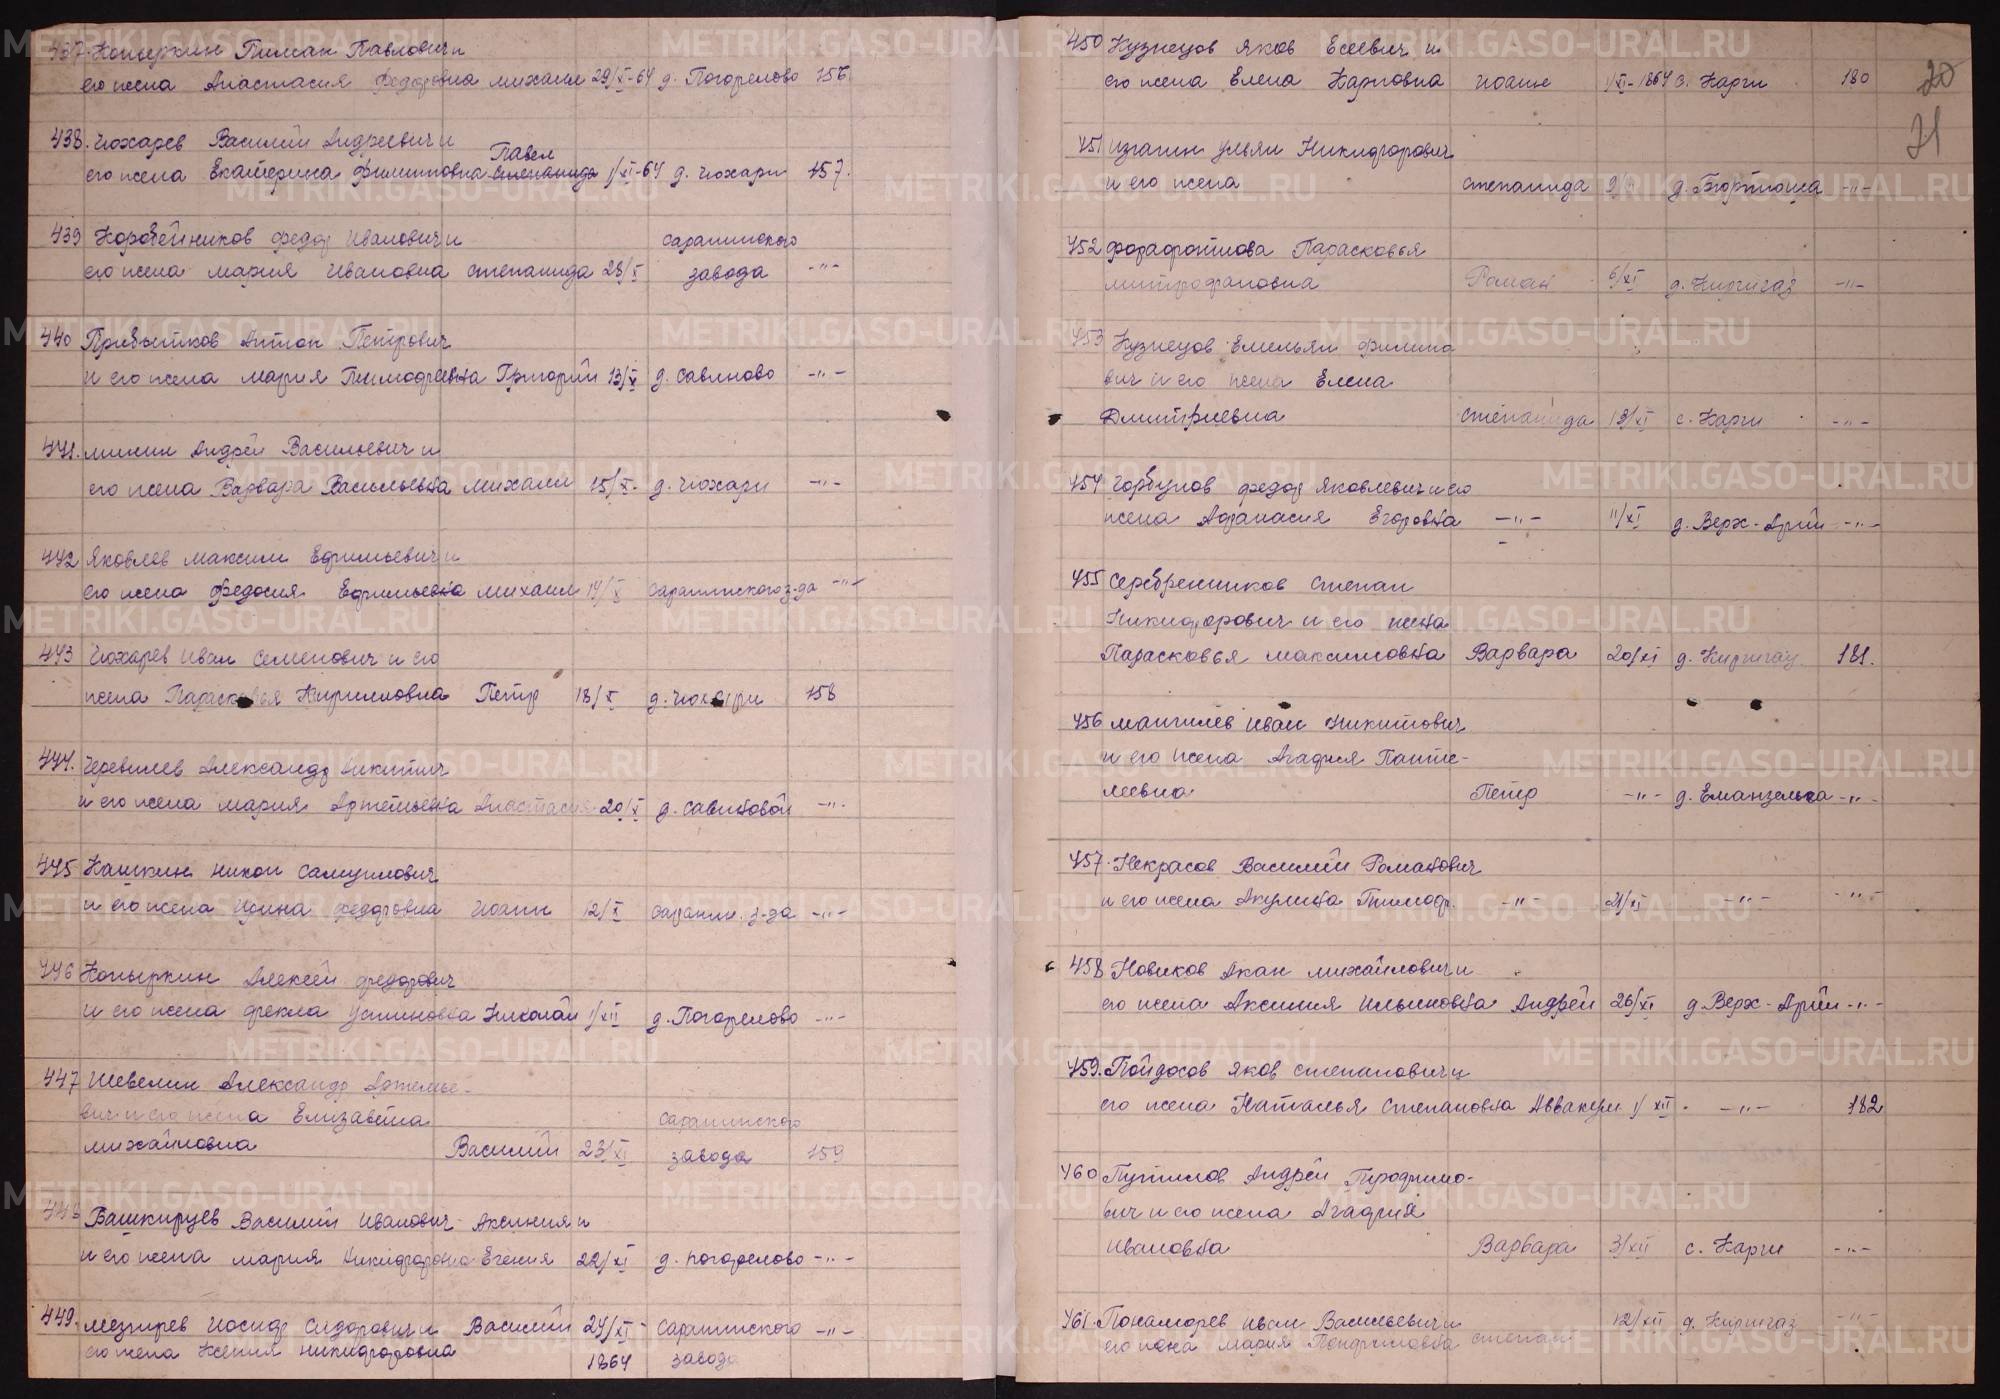 437. Копыркин Тиман Павлович и
его жена Анастасия Федоровна Михаил 29/X-64 д. Погорелово 156
438. Чюхарев Василий Андреевич и
Павел
его жена Екатерина Филипповна Степанида 1/XI-64 д. Чюхари 157.
439 Коробейников Федор Иванович и Сараминского
его жена Мария Ивановна Степанида 28/X завода -"-
440 Прибытков Антон Петрович
и его жена Мария Тимофеевна Григорий 13/X д. Савиново -"-
441. Минин Андрей Васильевич и
его жена Варвара Васильевна Михаил 15/X. д. Чюхари -"-
442 Яковлев Максим Ефимьевич и
его жена Федосия Ефимьевна Михаил 14/X Сараминского з-да -"-
443 Чюхарев Иван Семенович и его
жена Парасковья Кирилловна Петр 18/X д. Чюхари 158
444. Черепилев Александр Никитич
и его жена Мария Артемьевна Анастасия 20/X д. Савиновой -"-
445 Кашкин Никон Самуилович
и его жена Ирина Федоровна Иоанн 12/X Сарамин. з-да -"-
446 Копыркин Алексей Федорович
и его жена Фекла Устиновна Николай 1/XII д. Погорелово -"-
447 Шевелин Александр Артемье-
вич и его жена Елизавета Сараминского
Михайловна Василий 23/XI завода 159
448 Башкирцев Василий Иванович Аксиния и
и его жена Мария Никифоровна Евгения 22/XI д. Погорелово -"-
449. Мезтирев Иосиф Сидорович и Василий 24/XI- Сараминского -"-
его жена Ксения Никифоровна 1864 завода
20
21
450 Кузнецов Яков Евсеевич и
его жена Елена Карповна Иоанн 1/XI-1864 с. Карги 180
451 Изгагин Ульян Никифорович
и его жена Степанида д. Тюртюша -"-
452 Форафонтова Парасковья
Митрофановна Роман 6/XI д. Киргишаз -"-
453 Кузнецов Емельян Филипо
вич и его жена Елена
Дмитриевна Степанида 13/XI с. Карги -"-
454 Горбунов Федор Яковлевич и его
жена Афанасия Егоровна -"- 11/XI д. Верх-Арий -"-
455 Серебренников Степан
Никифорович и его жена
Парасковья Максимовна Варвара 20/XI д. Киргишаз 181.
456 Мангилев Иван Никитович
и его жена Агафия Панте-
леевна Петр -"- д. Еманзельга -"-
457. Некрасов Василий Романович
и его жена Акулина Тимоф. -"- 21/XI -"- -"-
458 Новиков Акан Михайлович и
его жена Аксиния Ильиновна Андрей 26/XI д. Верх-Арий -"-
459. Пойдосов Яков Степанович и
его жена Наталья Степановна Аввакум 1/XII -"- 182
460 Путилов Андрей Трофимо-
вич и его жена Агафия
Ивановна Варвара 3/XII с. Карги -"-
461. Понамарев Иван Васильевич и 12/XII д. Киргишаз -"-
его жена Мария Панфиловна Степан